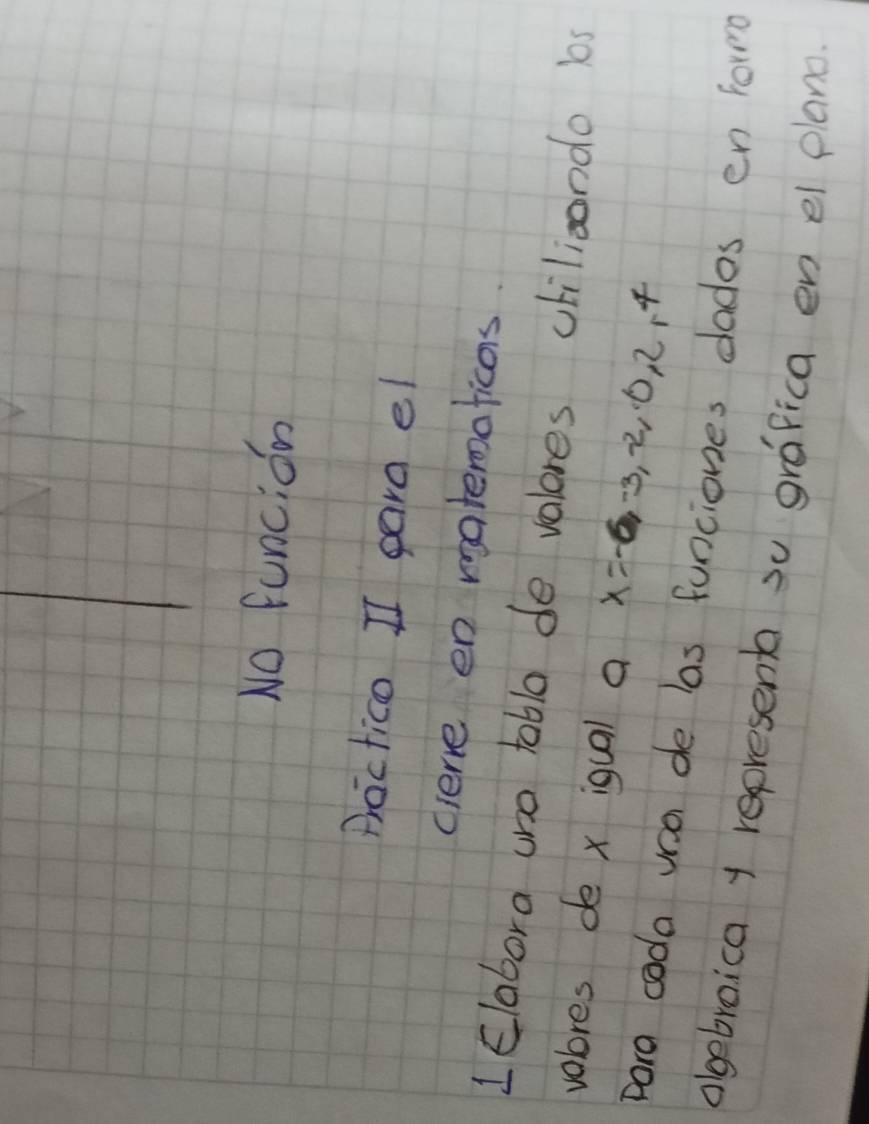 No función
Práctico II para el
cierre en matematicas.
1 Elabora una tabla de valores utilizando los
valores de x igual a x=-6,-3,-2,0,2,4
Para cada una de las funciones dadas en forma
algebraica y representa su gráfica en el plano.